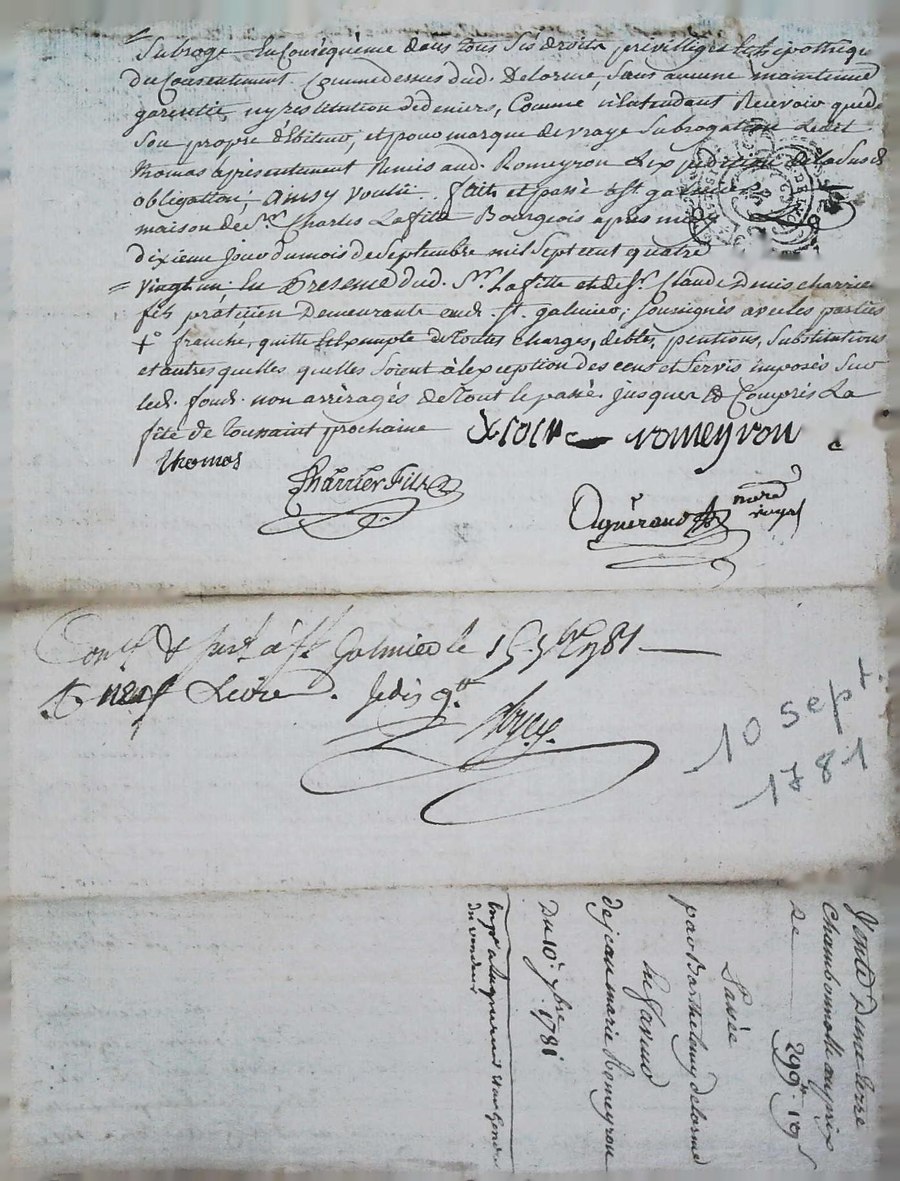 Subroge en Conséquence dans tous ses droits, privilliges et hipotheque
du Consentement Comme dessus dud. Delorme, Sans aucune maintenue
garentie, ny restitution de deniers, Comme n'entendant Recevoir que de
Son propre débiteur, et pour marque de vraye Subrogation Ledit
thomas a présentement Remis aud. Romeyron L'expedition de la Susd.
obligation; ainsy voulu fait et passé a St. galmier
maison de Sr. Charles Lafitte Bourgeois apres midy
dixieme jour du mois de Septembre mil Sept cent quatre
= vingt un: En Presence dud. Sr. Lafitte et de Sr. Claude Denis charrier
fils praticien Demeurants aud. St. galmier, soussignés avec les parties
+° franche, quitte et Exempte de toutes charges, debtes, pentions, Substitutions
et autres quelles quelles Soient à l'exception des cens et Servis imposés Sur
led. fond. non arréragés de tout le passé jusques et Compris La
fête de toussaint prochaine
Delorme romeyron
thomas
Charrier Fils
Aguéraud
nore royal
galmier le 15. 7bre 1781
neuf Livre
10 sept.
1781
Vente D'une terre
Chambonnotte au prix
de 299# 19s
Passée
par Barthelemy delorme
En faveur
de jean marie Romeyron
Du 10e. 7bre 1781